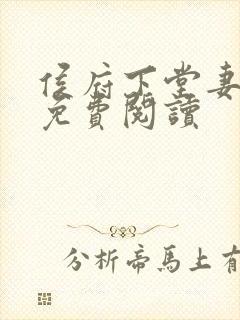 侯府下堂妻
免費閱讀
分析帝馬上有